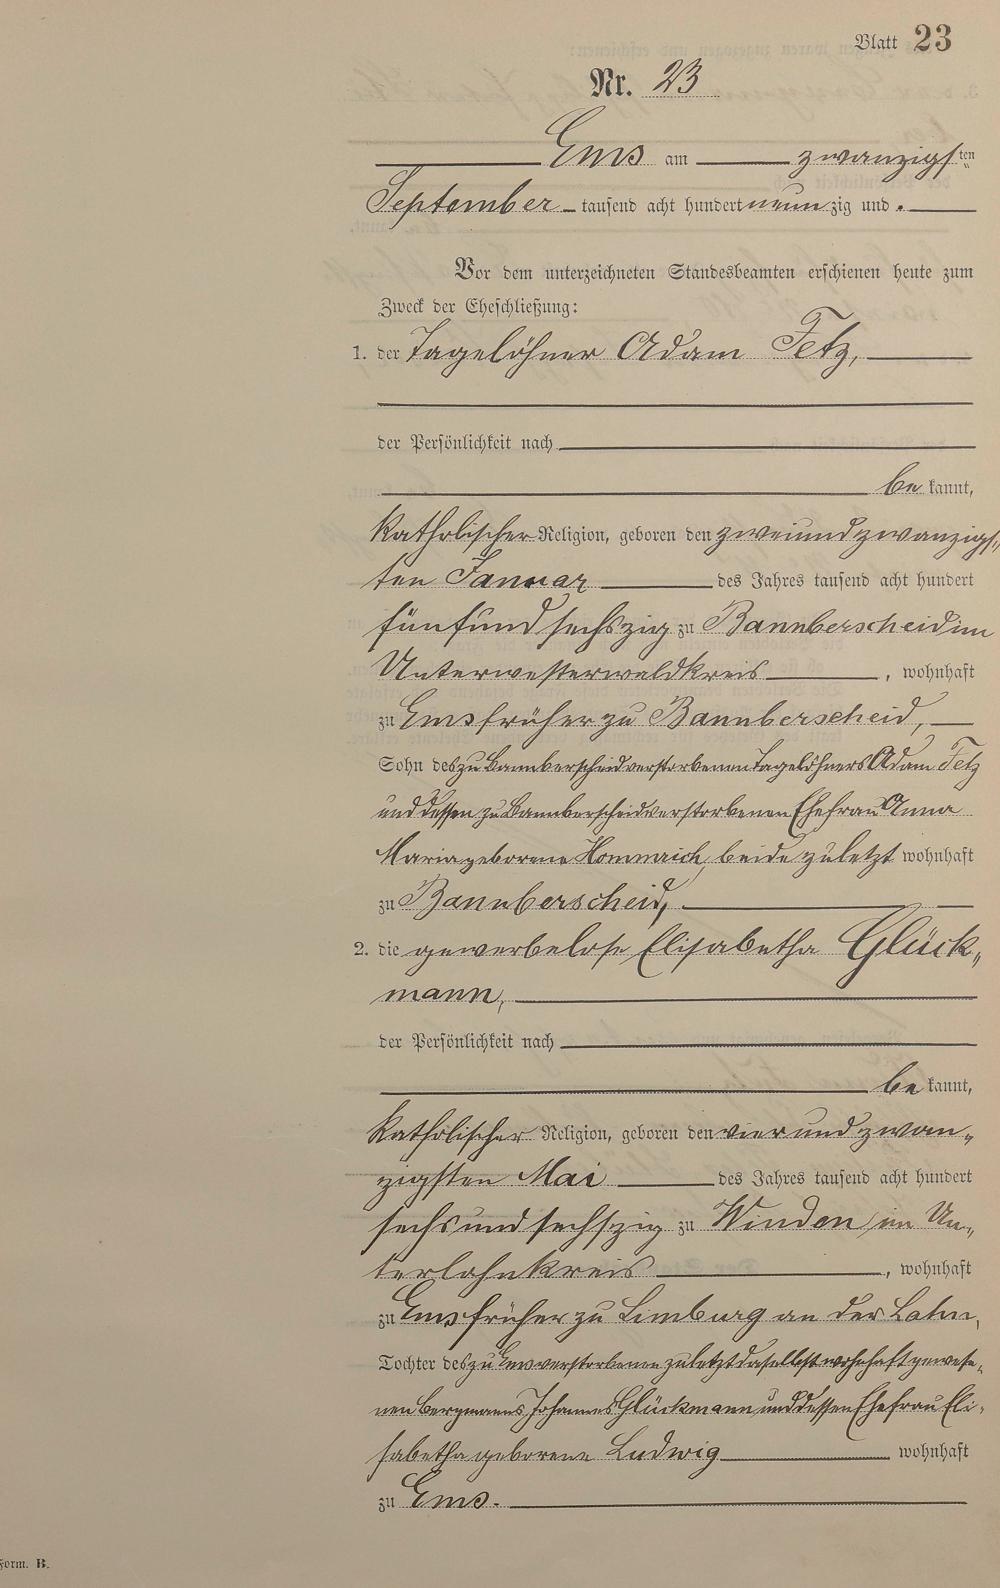 Blatt 23
Nr. 23
Ems am zwanzigsten
September tausend acht hundert neunzig und .
Vor dem unterzeichneten Standesbeamten erschienen heute zum
Zweck der Eheschließung:
1. der Tagelöhner Adam Fetz,
der Persönlichkeit nach
be kannt,
katholischer Religion, geboren den zweiundzwanzigs-
ten Januar des Jahres tausend acht hundert
fünfundsechszig zu Bannberscheid im
Unterwesterwaldkreis, wohnhaft
zu Ems früher zu Bannberscheid,
Sohn des zu Bannberscheid verstorbenen Tagelöhners Adam Fetz
und dessen zu Bannberscheid verstorbenen Ehefrau Anna
Maria geborene Hommrich, beide zuletzt wohnhaft
zu Bannberscheid,
2. die gewerbelose Elisabetha Glück-
mann,
der Persönlichkeit nach
be kannt,
katholischer Religion, geboren den vier und zwan-
zigsten Mai des Jahres tausend acht hundert
sechs und sechszig zu Winden im Un-
terlahnkreis, wohnhaft
zu Ems früher zu Limburg an der Lahn,
Tochter des zu Ems verstorbenen zuletzt daselbst wohnhaft gewese-
nen Bergmanns Johannes Glückmann und dessen Ehefrau Eli-
sabetha geborene Ludwig wohnhaft
zu Ems.
Form. B.